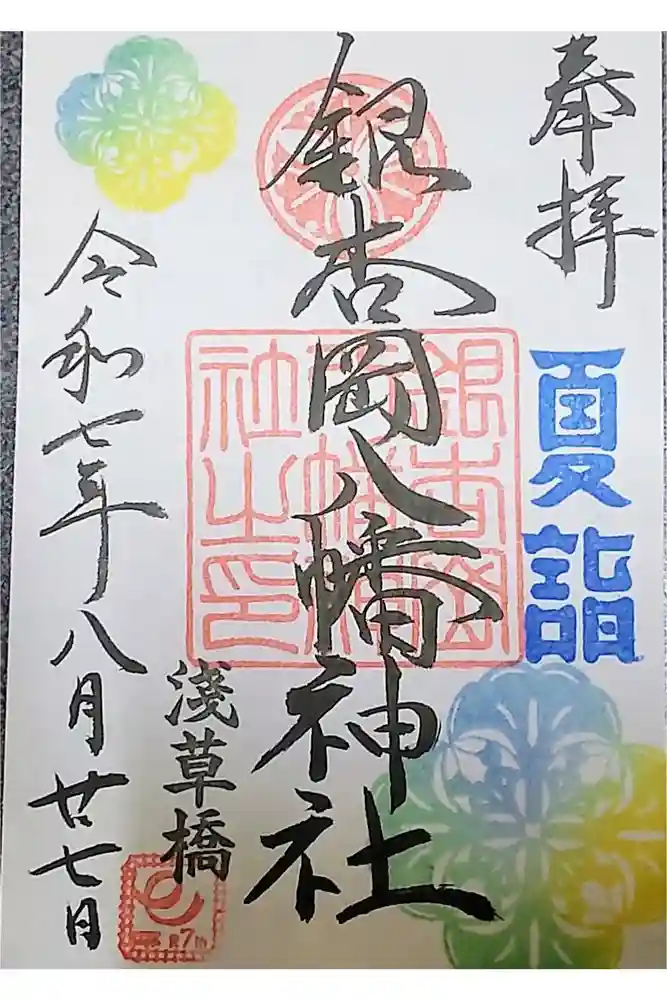 奉拝
夏詣
銀杏岡八幡神社
銀杏岡
八幡神
社之印
浅草橋
令和七年八月廿七日